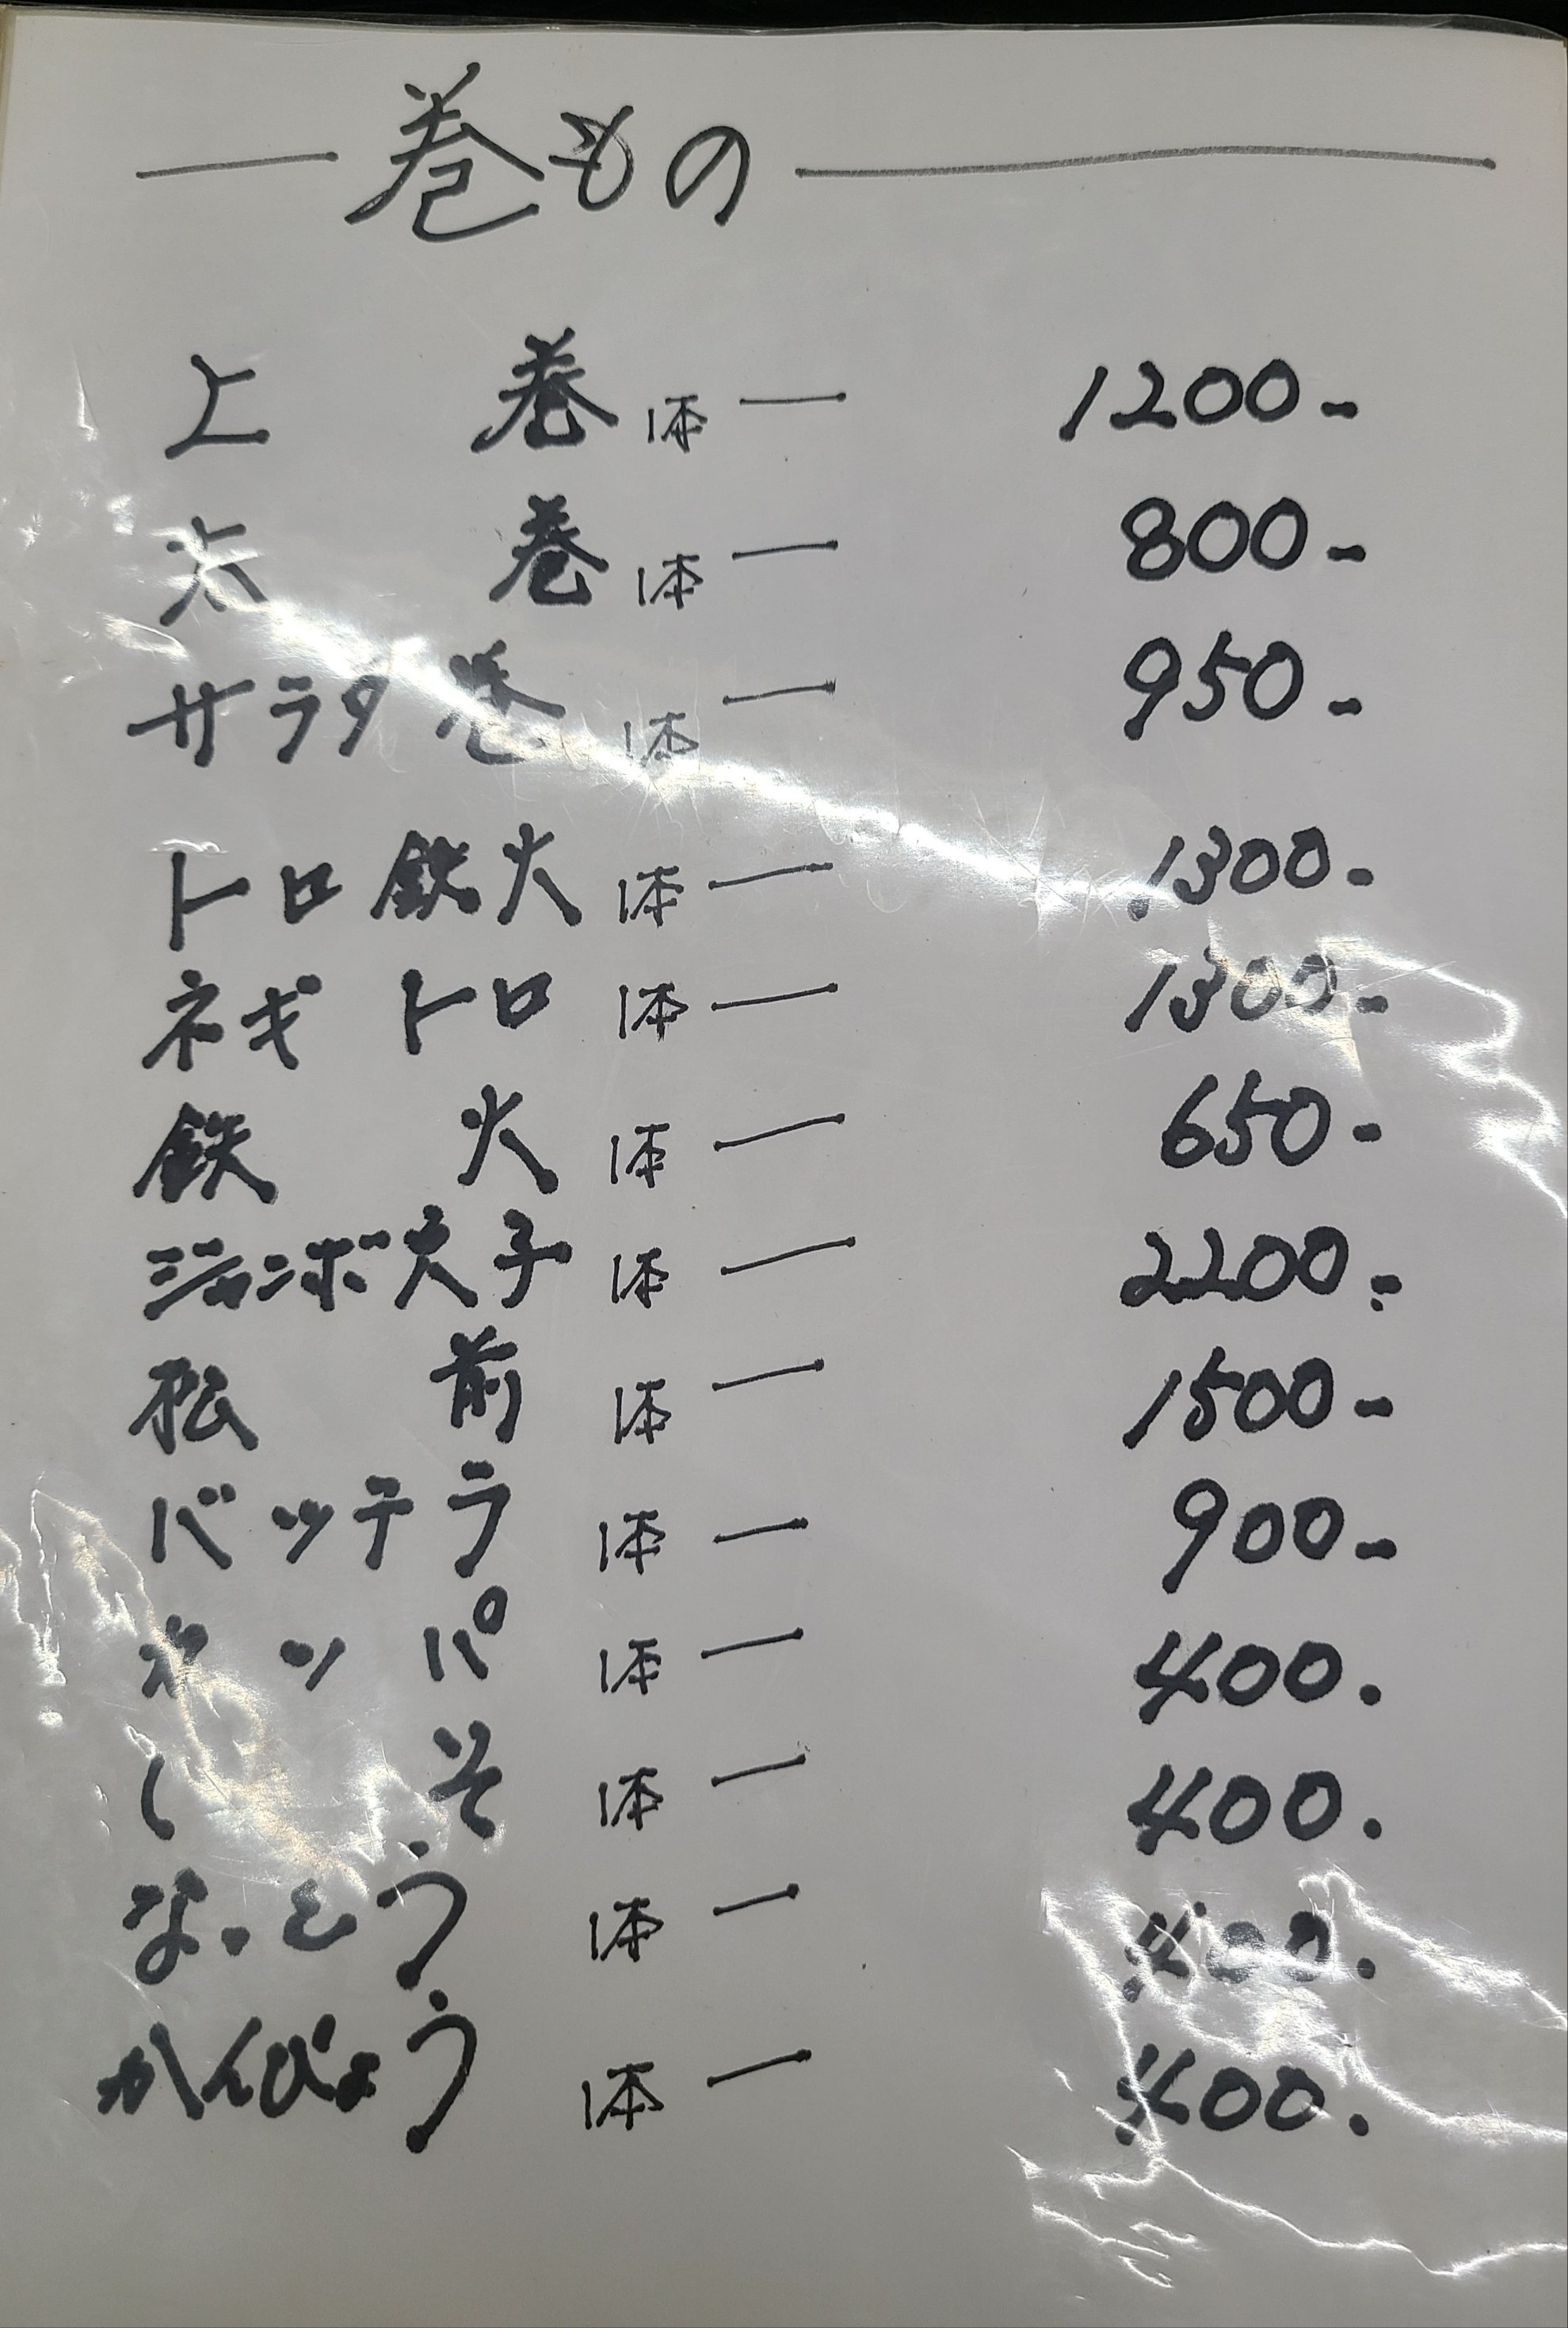 — 巻もの —
上 巻 1本 — 1200-
太 巻 1本 — 800-
サラダ巻 1本 — 950-
トロ鉄火 1本 — 1300-
ネギトロ 1本 — 1300-
鉄 火 1本 — 650-
ジャンボ穴子 1本 — 2200-
松 前 1本 — 1500-
バッテラ 1本 — 900-
カッパ 1本 — 400.
しそ 1本 — 400.
なっとう 1本 — 400.
かんぴょう 1本 — 400.